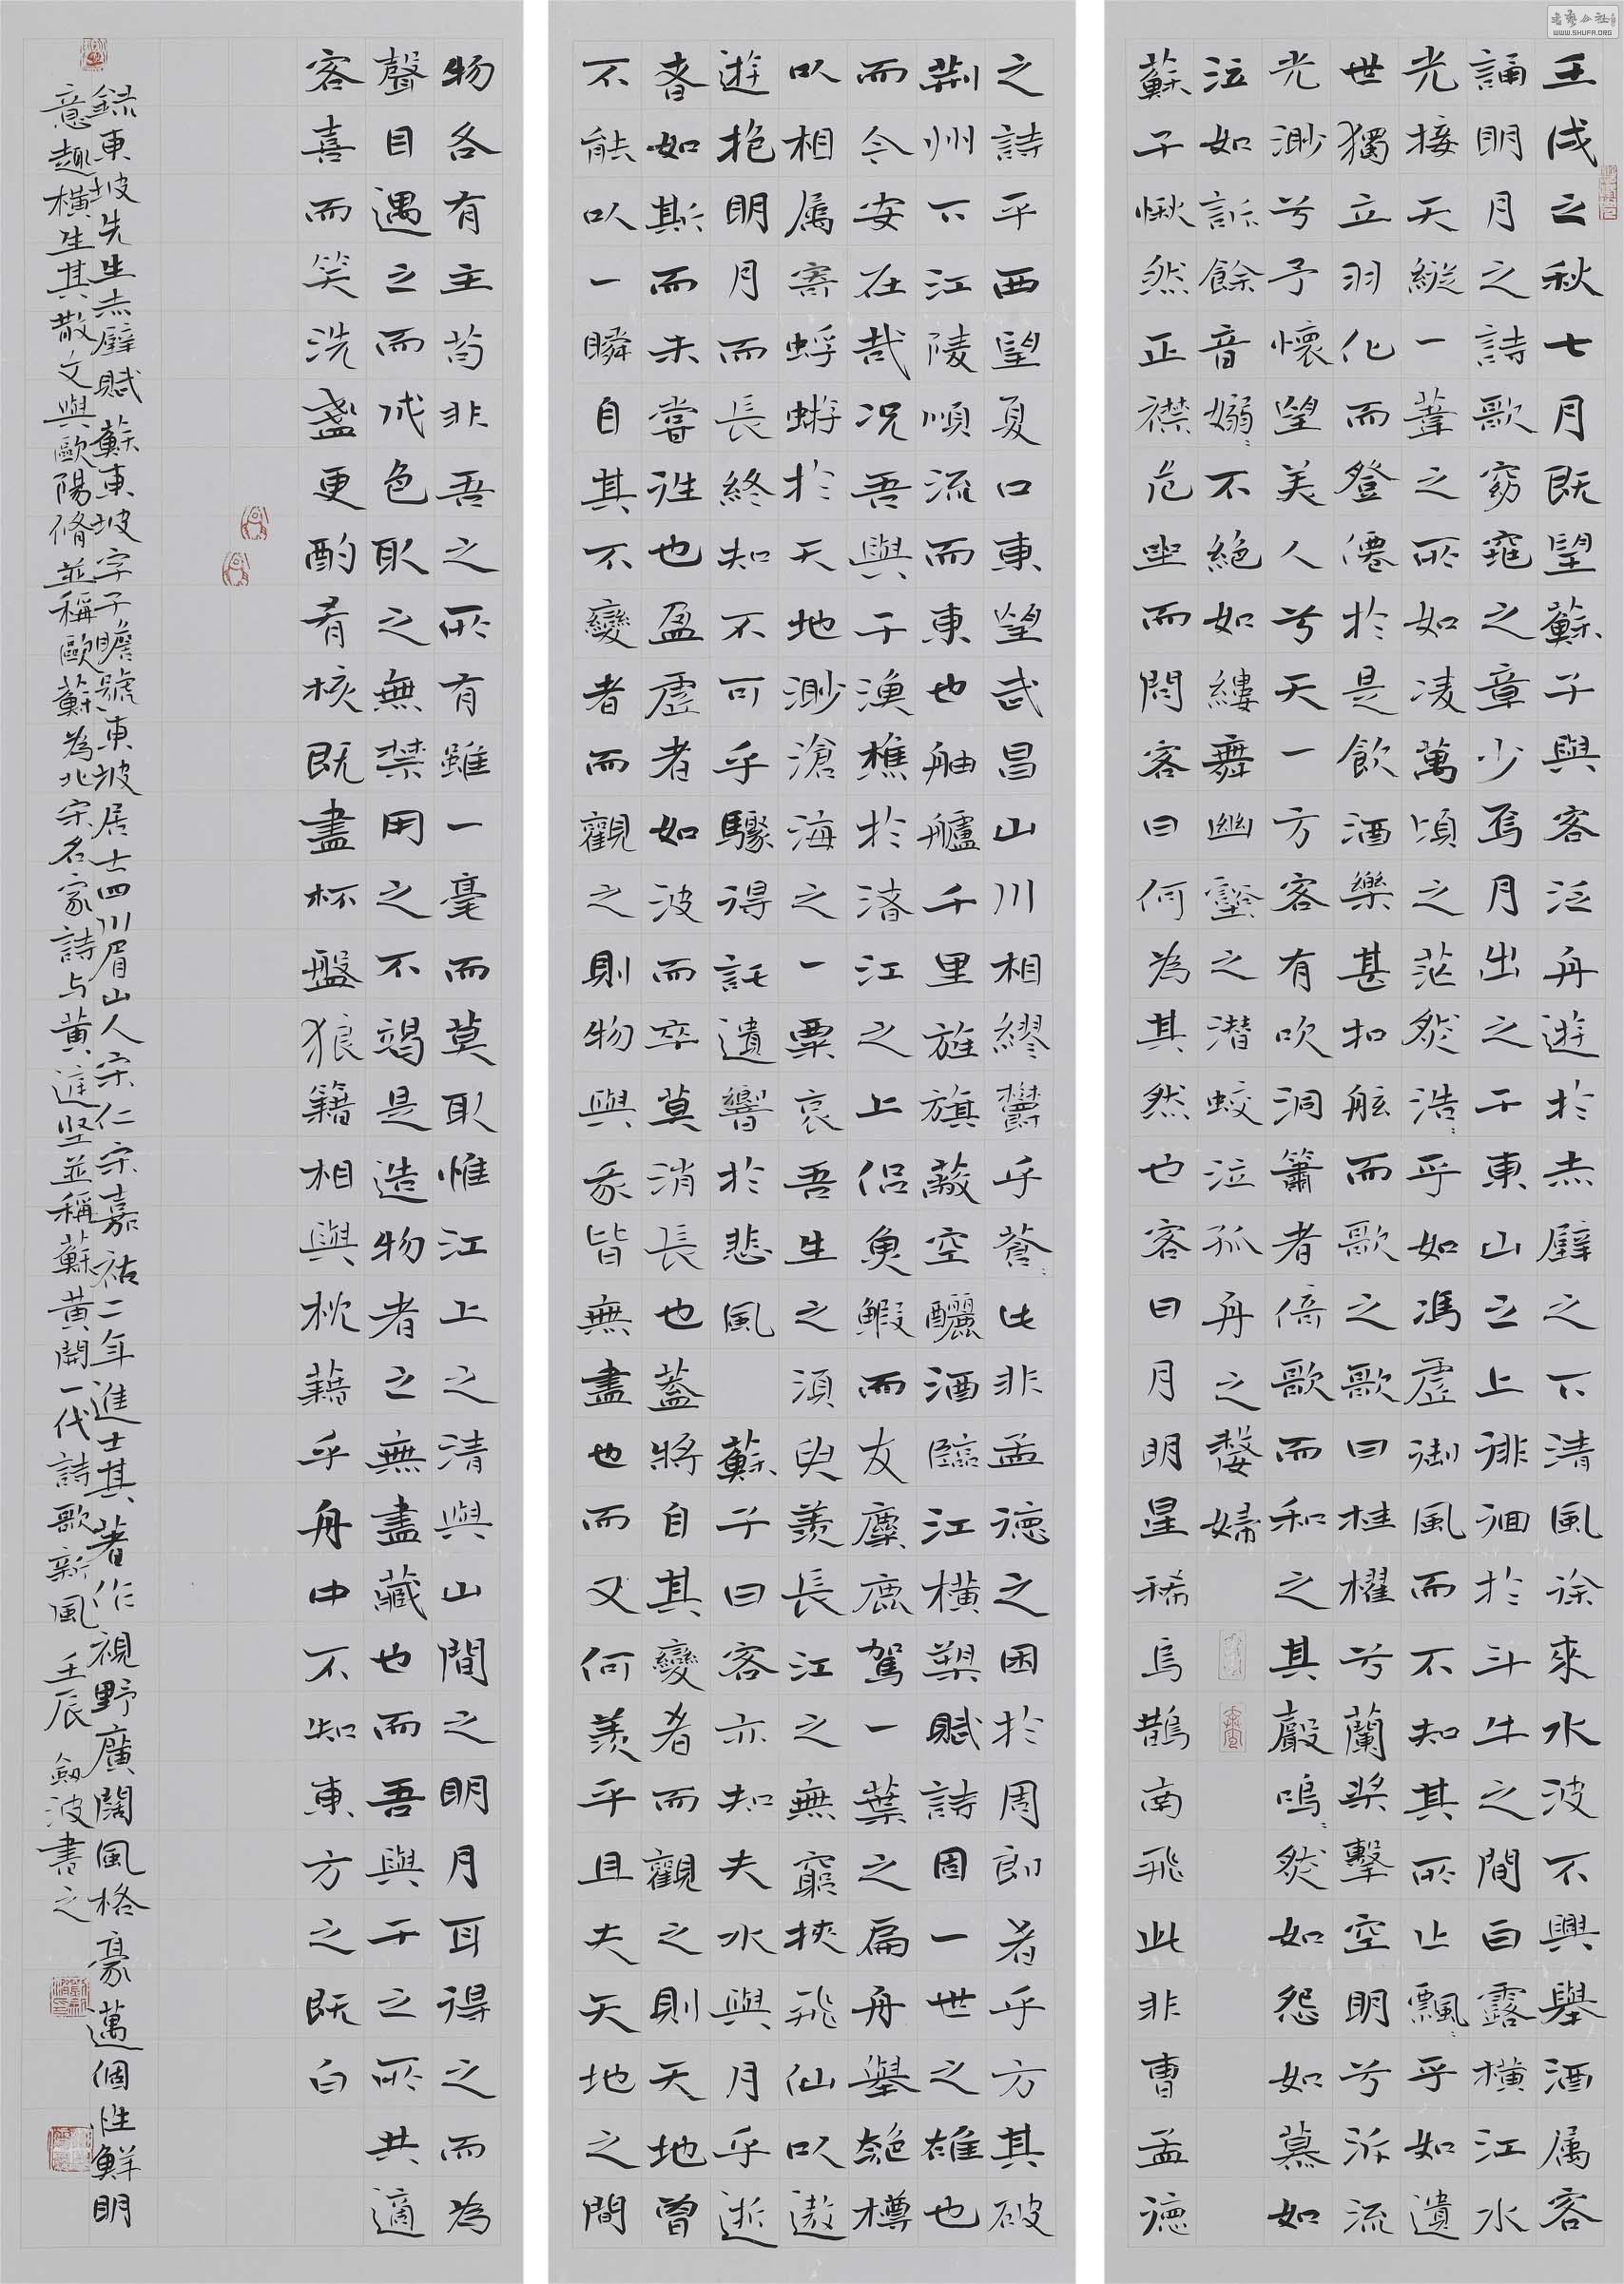 壬戌之秋七月既望蘇子與客泛舟遊於赤壁之下清風徐來水波不興舉酒属客
誦明月之詩歌窈窕之章少焉月出之于東山之上徘徊於斗牛之間白露橫江水
光接天縱一葦之所如凌萬頃之茫然浩〻乎如馮虛御風而不知其所止飄〻乎如遺
世獨立羽化而登僊於是飲酒樂甚扣舷而歌之歌曰桂櫂兮蘭槳擊空明兮泝流
光渺兮予懷望美人兮天一方客有吹洞簫者倚歌而和之其聲嗚〻然如怨如慕如
泣如訴餘音嫋〻不絕如縷舞幽壑之潛蛟泣孤舟之嫠婦
蘇子愀然正襟危坐而問客曰何為其然也客曰月明星稀烏鵲南飛此非曹孟德
之詩乎西望夏口東望武昌山川相繆鬱乎蒼〻此非孟德之困於周郎者乎方其破
荊州下江陵順流而東也舳艫千里旌旗蔽空釃酒臨江橫槊賦詩固一世之雄也
而今安在哉况吾與子漁樵於渚江之上侶魚鰕而友麋鹿駕一葉之扁舟舉匏樽
以相属寄蜉蝣於天地渺滄海之一粟哀吾生之須臾羨長江之無窮挾飛仙以遨
遊抱明月而長終知不可乎驟得託遺響於悲風 蘇子曰客亦知夫水與月乎逝
者如斯而未嘗往也盈虛者如波而卒莫消長也蓋將自其變者而觀之則天地曾
不能以一瞬自其不變者而觀之則物與我皆無盡也而又何羨乎且夫天地之間
物各有主苟非吾之所有雖一毫而莫取惟江上之清與山間之明月耳得之而為
聲目遇之而成色取之無禁用之不竭是造物者之無盡藏也而吾與子之所共適
客喜而笑洗盞更酌肴核既盡杯盤狼籍相與枕藉乎舟中不知東方之既白
錄東坡先生赤壁賦蘇東坡字子瞻號東坡居士四川眉山人宋仁宗嘉祐二年進士其著作視野廣闊風格豪邁個性鮮明
意趣橫生其散文與歐陽脩並稱歐蘇為北宋名家詩与黃庭坚並稱蘇黃開一代詩歌新風 壬辰 劍波書之
WWW.SHUFA.ORG